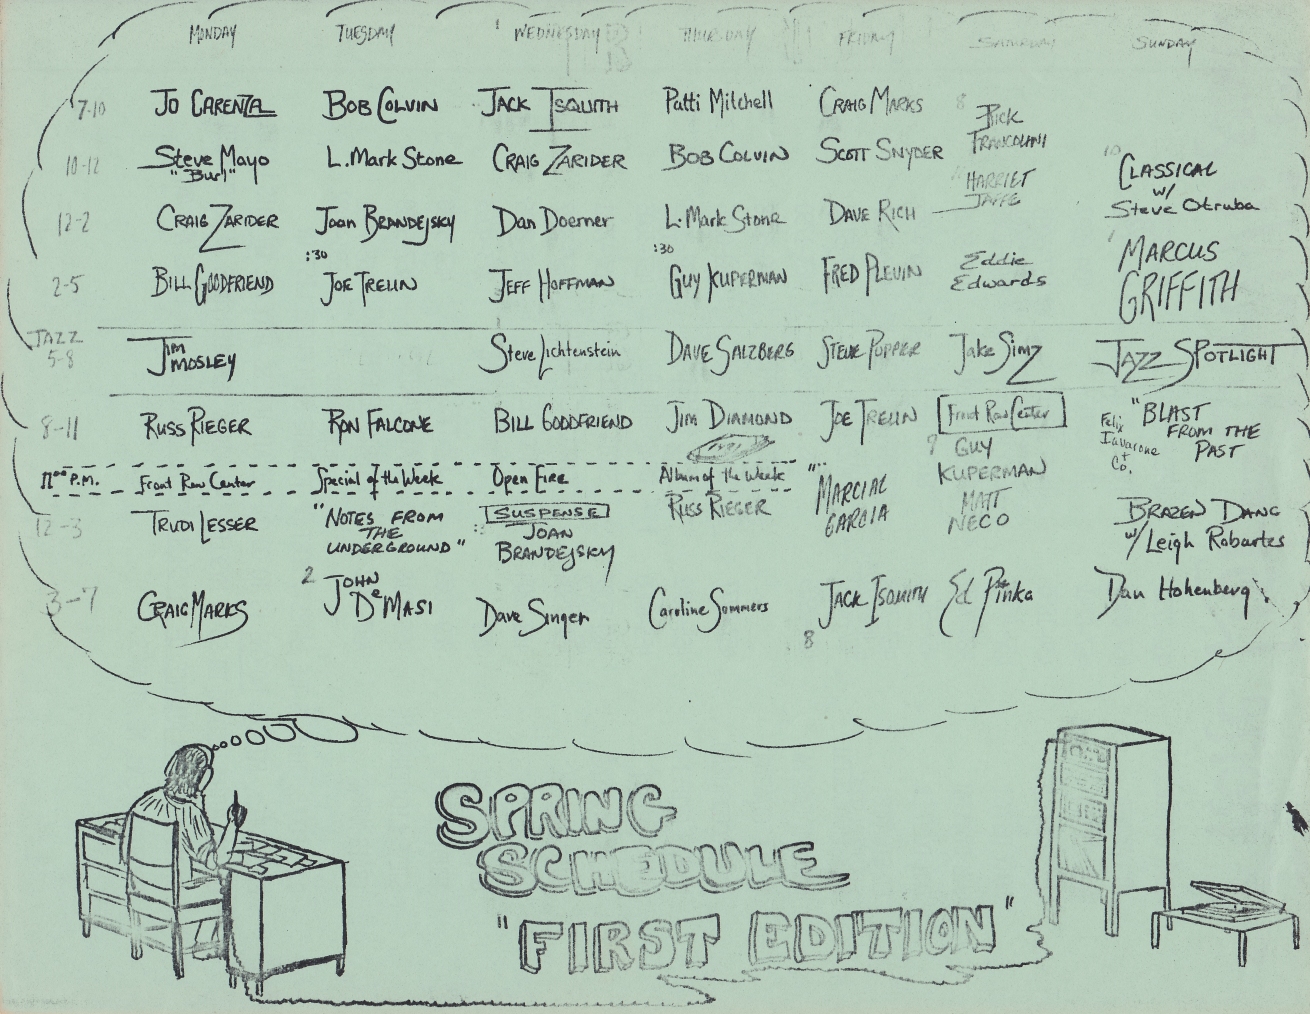 MONDAY TUESDAY WEDNESDAY THURSDAY FRIDAY SATURDAY SUNDAY
7-10 JO CARENZA BOB COLVIN JACK ISQUITH Patti Mitchell CRAIG MARKS 8 RICK
FRANCOLINI
10-12 Steve Mayo L. Mark Stone CRAIG ZARIDER BOB COLVIN SCOTT SNYDER 10 CLASSICAL
"Burl" HARRIET w/
JAFFE Steve Otruba
12-2 CRAIG ZARIDER Joan BRANDEJSKY Dan Doerner L. Mark Stone DAVE RICH 1 MARCUS
GRIFFITH
:30 :30
2-5 BILL GOODFRIEND JOE TRELIN JEFF HOFFMAN GUY KUPERMAN FRED PLEVIN Eddie
Edwards
JAZZ
5-8 JIM MOSLEY Steve Lichtenstein DAVE SALZBERG STEVE POPPER Jake Simz JAZZ SPOTLIGHT
8-11 RUSS RIEGER RON FALCONE BILL GOODFRIEND JIM DIAMOND JOE TRELIN Front Row Center "BLAST
Felix FROM THE
Iavarone PAST
+
Co.
9 GUY
KUPERMAN
11:00 P.M. Front Row Center Special of the Week Open Fire Album of the Week MARCIAL
GARCIA
MATT
NECO
12-3 TRUDI LESSER "NOTES FROM SUSPENSE RUSS RIEGER BRAZEN DANG
THE JOAN w/ Leigh Robartes
UNDERGROUND" BRANDEJSKY
3-7 CRAIG MARKS 2 JOHN Dave Singer Caroline Sommers JACK ISQUITH Ed Pinka Dan Hohenberg
DeMASI
8
SPRING
SCHEDULE
"FIRST EDITION"